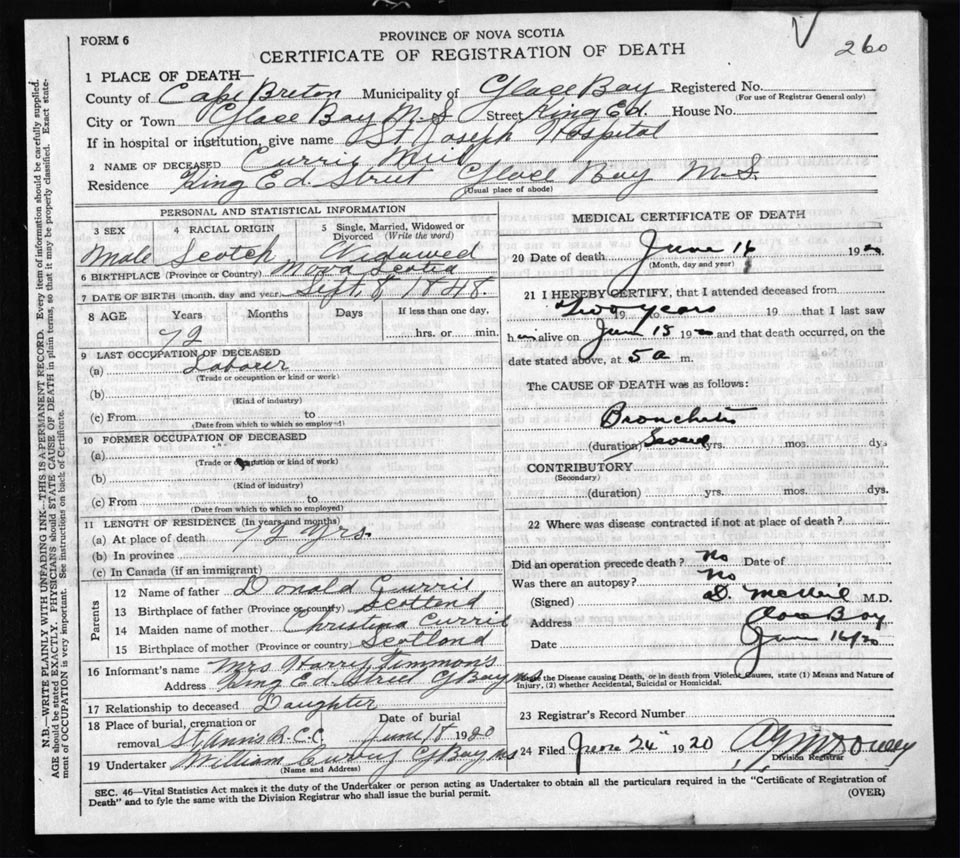 FORM 6
260
PROVINCE OF NOVA SCOTIA
CERTIFICATE OF REGISTRATION OF DEATH
1 PLACE OF DEATH—
County of Cape Breton Municipality of Glace Bay Registered No.
(For use of Registrar General only)
City or Town Glace Bay N.S Street King Ed. House No.
If in hospital or institution, give name St Joseph Hospital
2 NAME OF DECEASED Currie Neil
Residence King Ed. Street Glace Bay N.S.
(Usual place of abode)
PERSONAL AND STATISTICAL INFORMATION
3 SEX
4 RACIAL ORIGIN
5 Single, Married, Widowed or Divorced (Write the word)
Male Scotch Widawed
6 BIRTHPLACE (Province or Country) Nova Scotia
7 DATE OF BIRTH (month, day and year) Sept. 8, 1848.
8 AGE Years Months Days If less than one day,
72 hrs. or min.
9 LAST OCCUPATION OF DECEASED
(a) Labourer
(Trade or occupation or kind or work)
(b)
(Kind of industry)
(c) From to
(Date from which to which so employed)
10 FORMER OCCUPATION OF DECEASED
(a)
(Trade or occupation or kind or work)
(b)
(Kind of industry)
(c) From to
(Date from which to which so employed)
11 LENGTH OF RESIDENCE (In years and months)
(a) At place of death 72 yrs.
(b) In province
(c) In Canada (if an immigrant)
Parents
12 Name of father Donald Currie
13 Birthplace of father (Province or country) Scotland
14 Maiden name of mother Christina Currie
15 Birthplace of mother (Province or country) Scotland
16 Informant's name Mrs Harry Timmon's
Address King Ed. Street G Bay NS
17 Relationship to deceased Daughter
18 Place of burial, cremation or removal St Anns R.C.C Date of burial June 18 1920
19 Undertaker William Curry G Bay NS
(Name and Address)
MEDICAL CERTIFICATE OF DEATH
20 Date of death June 16 1920
(Month, day and year)
21 I HEREBY CERTIFY, that I attended deceased from
Two years 19 19 that I last saw
him alive on June 15 1920 and that death occurred, on the
date stated above, at 5 a m.
The CAUSE OF DEATH was as follows:
Bronchitis
(duration) Several yrs. mos. dys
CONTRIBUTORY
(Secondary)
(duration) yrs. mos. dys.
22 Where was disease contracted if not at place of death?
Did an operation precede death? No Date of
Was there an autopsy? No
(Signed) D. McNeil M.D.
Address Glace Bay
Date June 16/20
the Disease causing Death, or in death from Violent Causes, state (1) Means and Nature of
Injury, (2) whether Accidental, Suicidal or Homicidal.
23 Registrar's Record Number
24 Filed June 24" 1920
Division Registrar
SEC. 46—Vital Statistics Act makes it the duty of the Undertaker or person acting as Undertaker to obtain all the particulars required in the "Certificate of Registration of
Death" and to fyle the same with the Division Registrar who shall issue the burial permit.
(OVER)
N.B.—WRITE PLAINLY WITH UNFADING INK—THIS IS A PERMANENT RECORD. Every item of information should be carefully supplied.
AGE should be stated EXACTLY. PHYSICIANS should STATE CAUSE OF DEATH in plain terms, so that it may be properly classified. Exact state-
ment of OCCUPATION is very important. See instructions on back of Certificate.